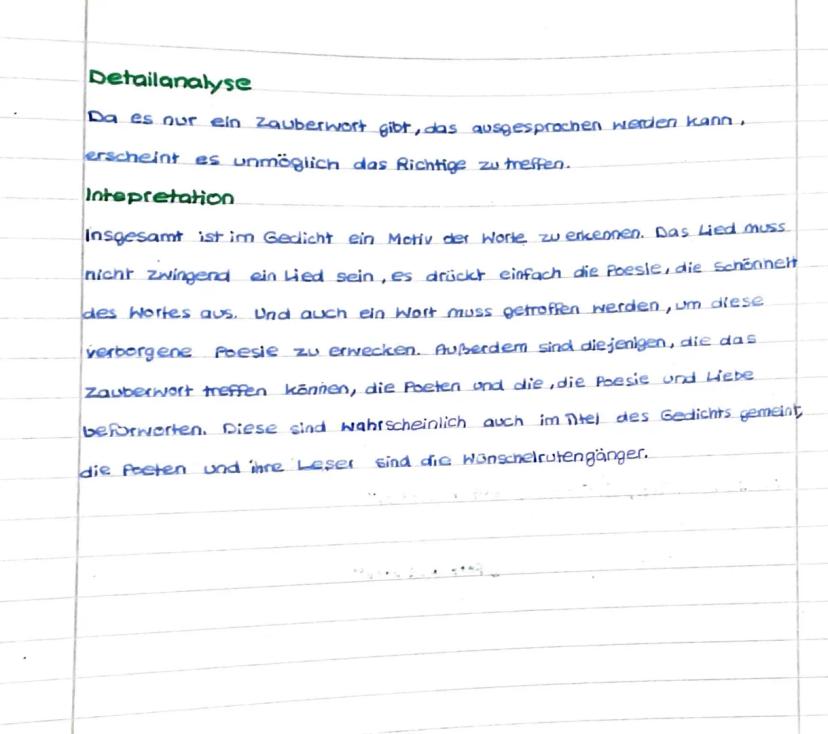 Detailanalyse
Da es nur ein Zauberwort gibt, das ausgesprochen werden kann,
erscheint es unmöglich das Richtige zu treffen.
Intepretation
Insgesamt ist im Gedicht ein Motiv der Worte zu erkennen. Das Lied muss
nicht zwingend ein Lied sein, es drückt einfach die Poesie, die Schönheit
des Wortes aus. Und auch ein Wort muss getroffen werden, um diese
verborgene Poesie zu erwecken. Außerdem sind diejenigen, die das
Zauberwort treffen können, die Poeten und die, die Poesie und Liebe
befürworten. Diese sind wahrscheinlich auch im Titel des Gedichts gemeint,
die Poeten und ihre Leser sind die Wünschelrutengänger.